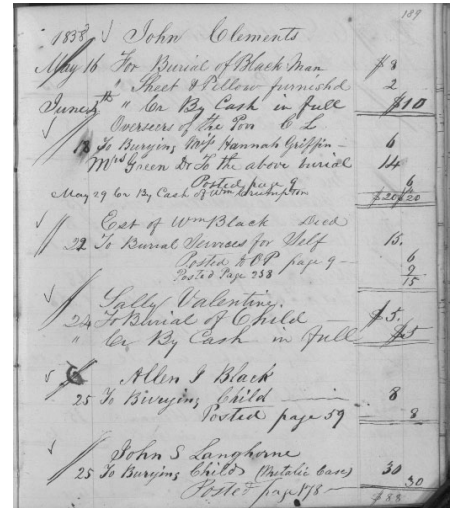 189
1858 John Clements
May 16 For Burial of Black Man $8
" Sheet & Pillow furnishd 2
June 4th " Cr By Cash in full $10
Overseers of the Poor C L
18 To Burying Miss Hannah Griffin - 6
Mrs Green Dr To the above burial 14
Posted page 9 6
May 29 Cr By Cash of Wm Crumpton $20 $20
Est of Wm Black Died
22 To Burial Services for Self 15.
Posted to OP page 9 - 6
Posted Page 238 9
15
Sally Valentine
24 To Burial of Child $5.
" Cr By Cash in full $5
Allen J Black
25 To Burying Child 8
Posted page 59 8
John S Langhorne
25 To Burying Child (Metalic Case) 30
Posted page 178 - 30
$88